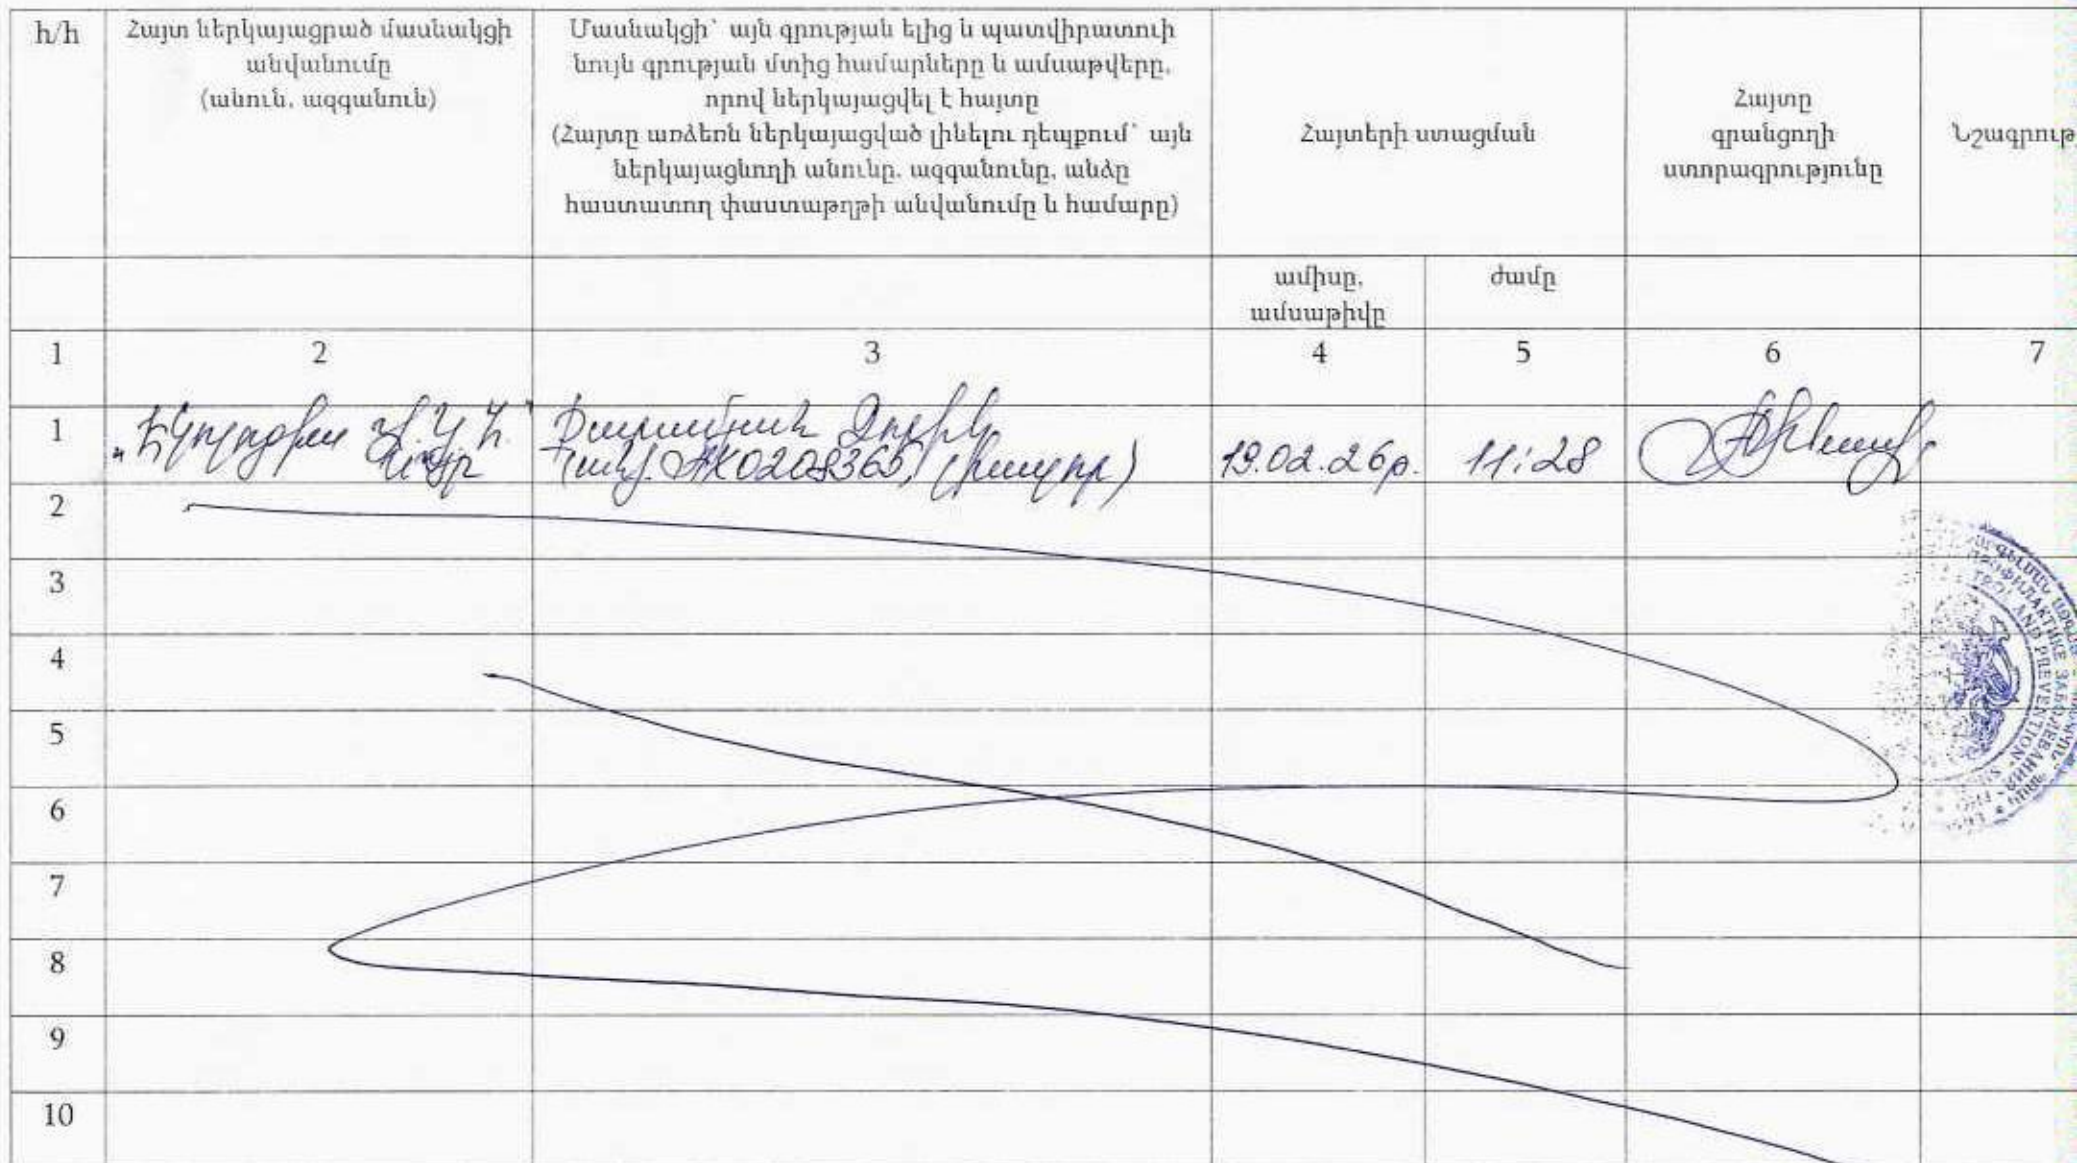 h/h
Հայտ ներկայացրած մասնակցի
անվանումը
(անուն, ազգանուն)
Մասնակցի՝ այն գրության ելից և պատվիրատուի
նույն գրության մտից համարները և ամսաթվերը,
որով ներկայացվել է հայտը
(Հայտը առձեռն ներկայացված լինելու դեպքում՝ այն
ներկայացնողի անունը, ազգանունը, անձը
հաստատող փաստաթղթի անվանումը և համարը)
Հայտերի ստացման
Հայտը
գրանցողի
ստորագրությունը
Նշագրութ
ամիսը,
ամսաթիվը
ժամը
1 2 3 4 5 6 7
1
19.02.26թ. 11:28
2
3
4
5
6
7
8
9
10
AND PREVENTION